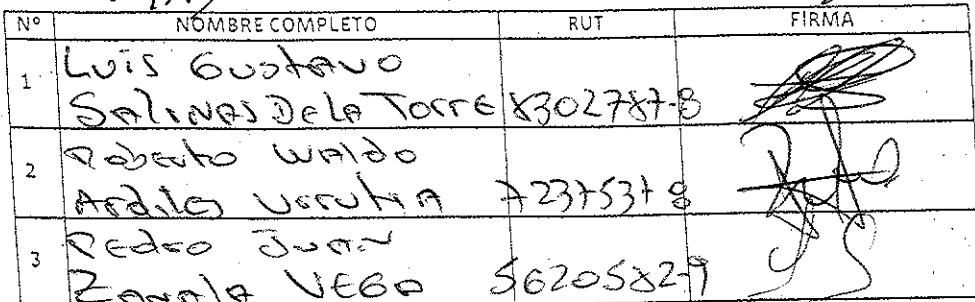 Nº NOMBRE COMPLETO RUT FIRMA
1 Luis Gustavo
Salinas De la Torre 8302787-8
2 Roberto Waldo
Ardiles Urrutia 7237537-8
3 Pedro Juan
Zavala Vega 5620582-9